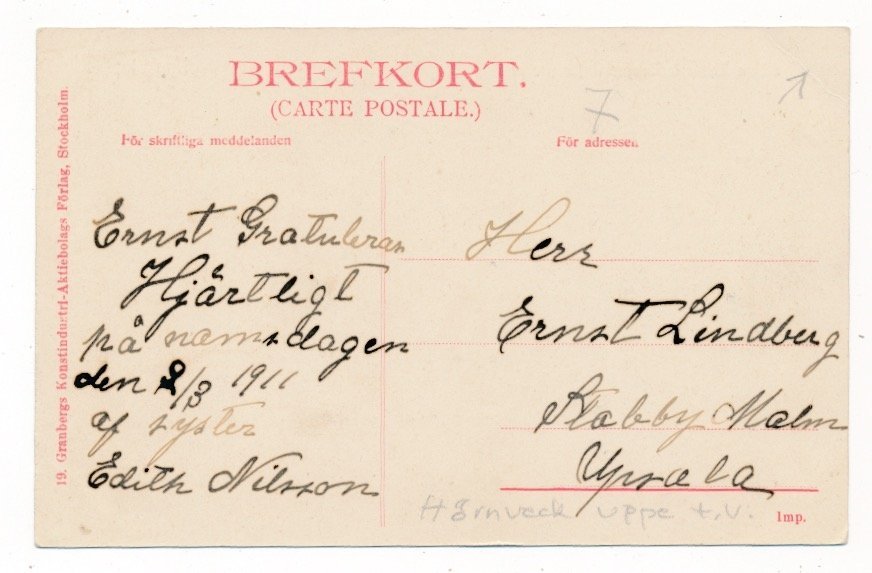 BREFKORT.
(CARTE POSTALE.)
För skriftliga meddelanden
För adressen
7
Ernst Gratuleras
Hjärtligt
på namsdagen
den 2/3 1911
af syster
Edith Nilsson
Herr
Ernst Lindberg
Stabby Malm
Upsala
Hörnveck uppe t.v.
Imp.
19. Granbergs Konstindustri-Aktiebolags Förlag, Stockholm.